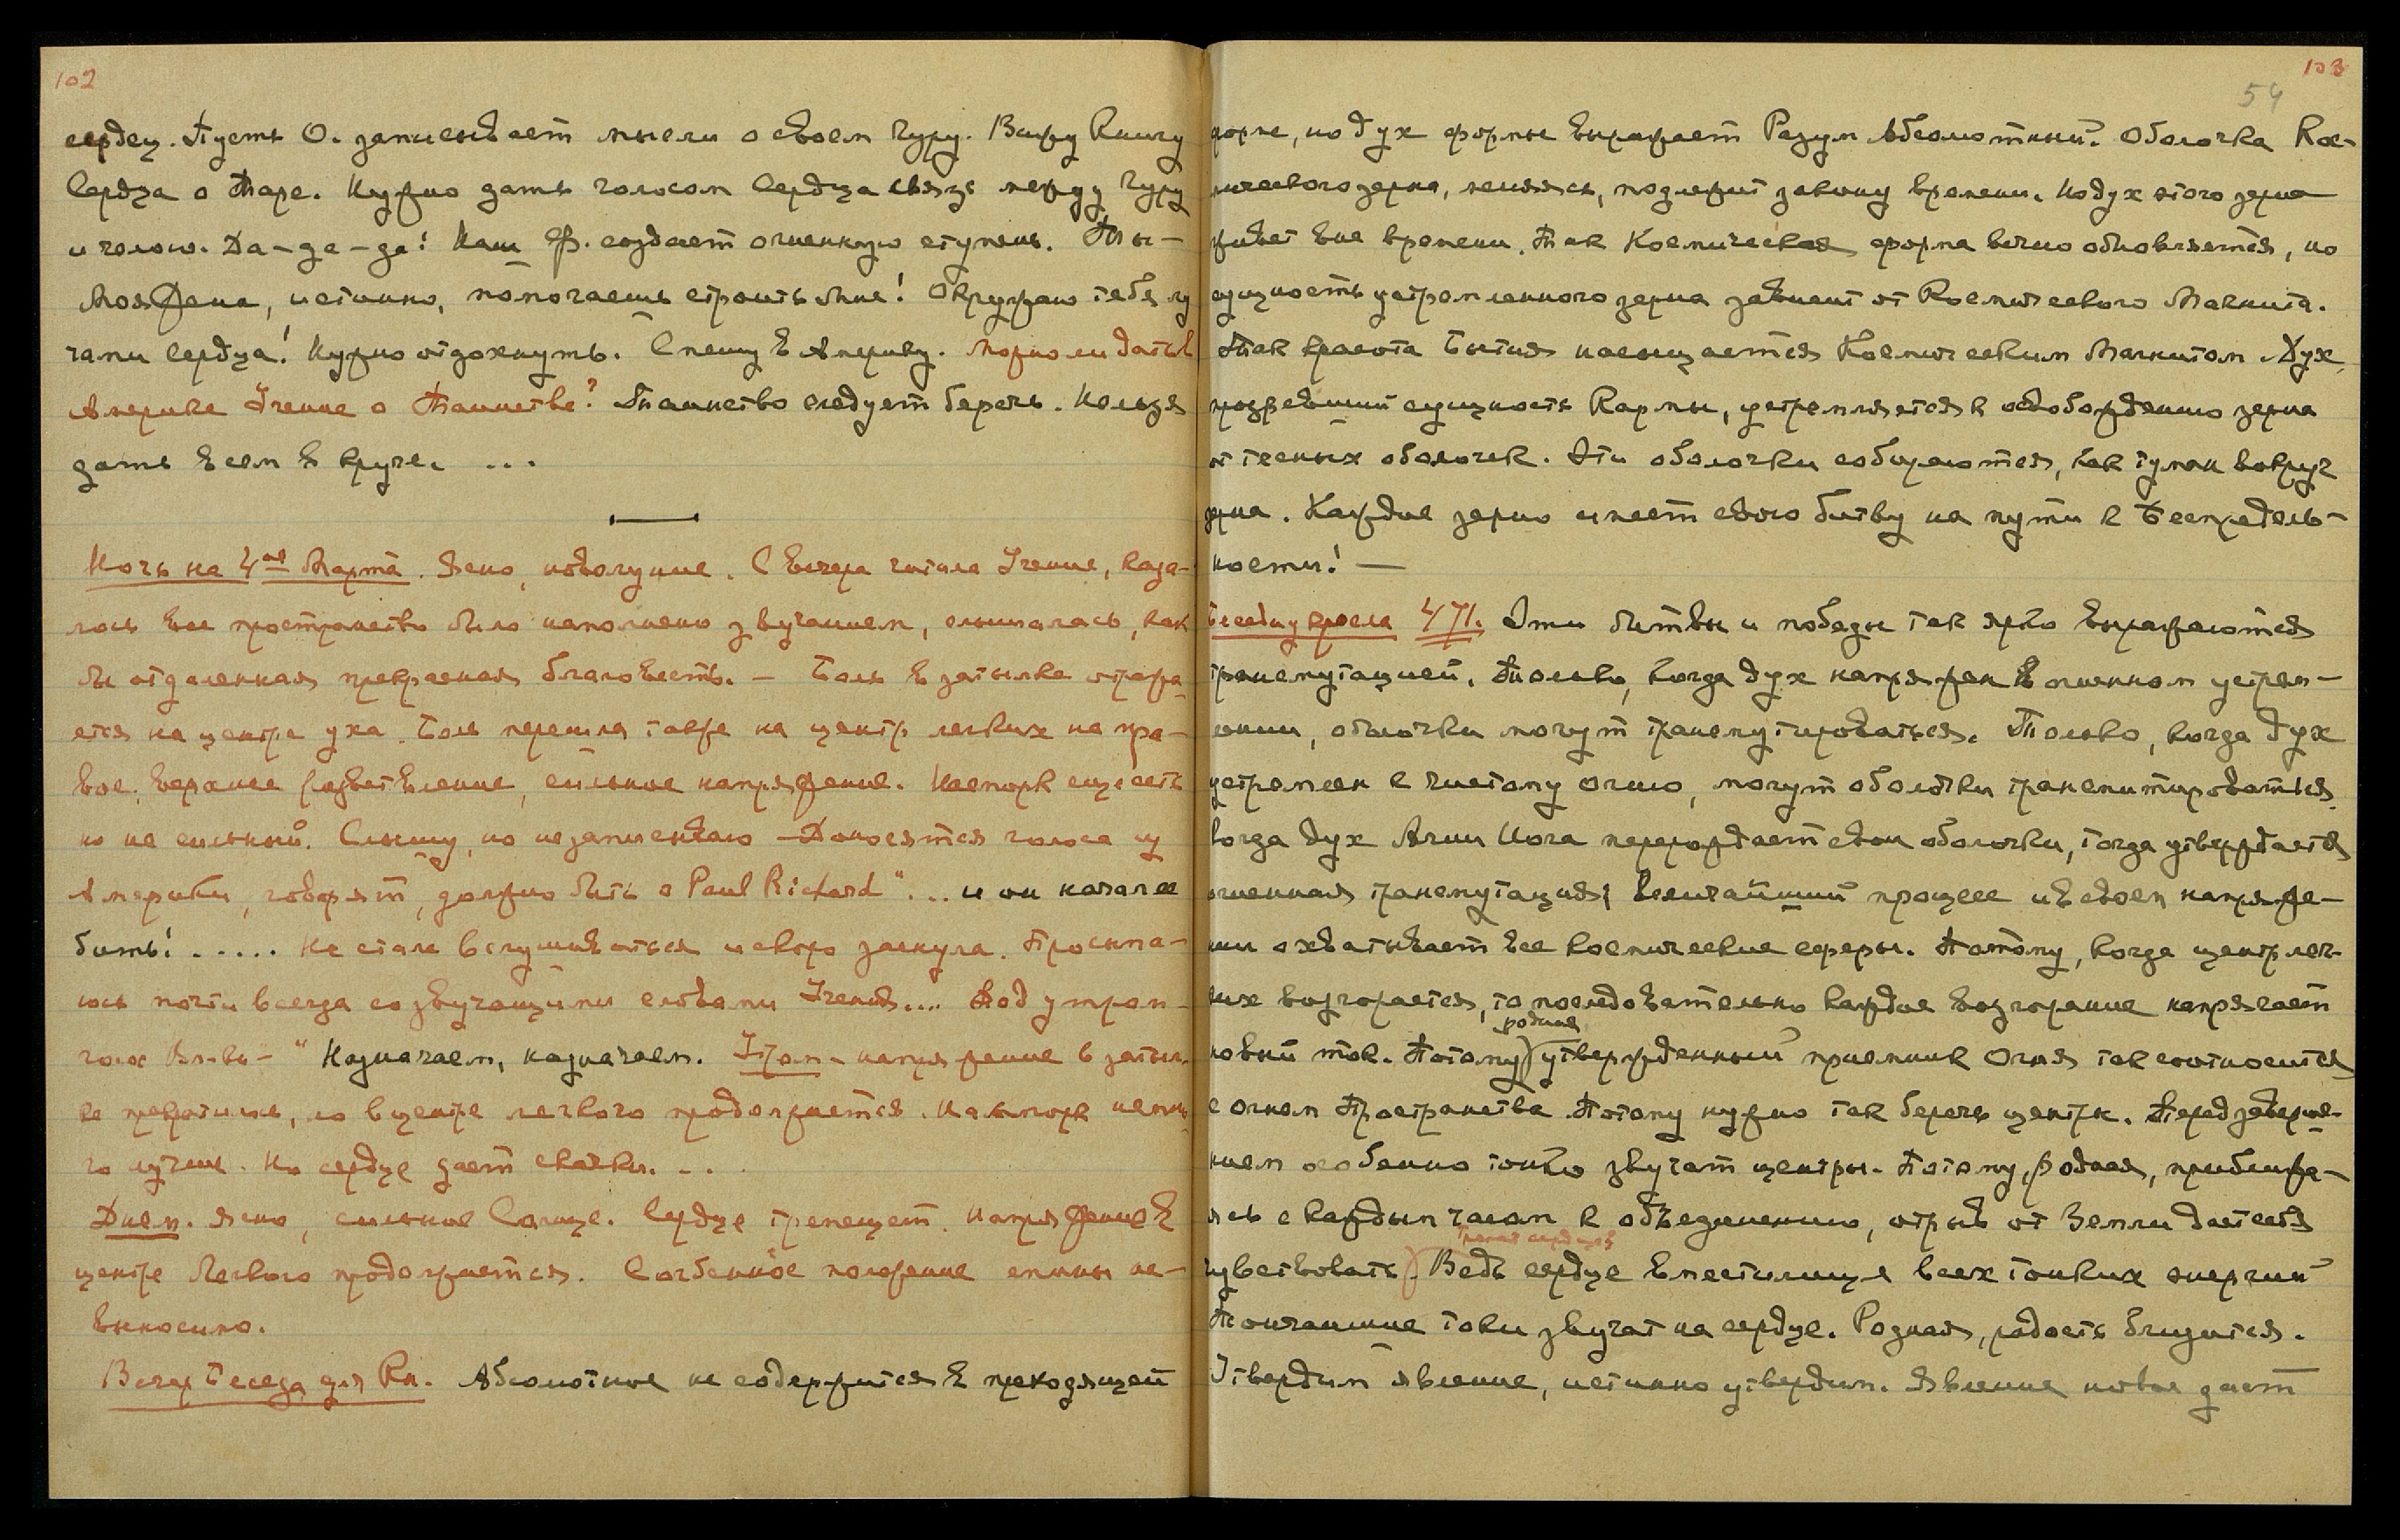 102
сердец. Пусть О. записывает мысли о своем Гуру. Вижу Книгу
Сердца о Таре. Нужно дать голосом Сердца связь между Гуру
и чело. Да-да-да! Наш Ф. создает огненную ступень. Ты-
Моя Жена, истинно, помогаешь строить Мне! Окружаю тебя лу
чами Сердца! Нужно отдохнуть. Спешу в Америку. Можно ли дать в
Америке Учение о Таинстве? Таинство следует беречь. Нельзя
дать всем в круге. ...
Ночь на 4ое Марта. Ясно, новолуние. С вечера читала Учение, каза-
лось все пространство было наполнено звучанием, слышалась, как
бы отдаленная прекрасная благовесть. – Боль в затылке отража
ется на центре уха. Боль перешла также на центр легких на пра-
вое, верхнее разветвление, сильное напряжение. Насморк еще есть
но не сильный. Слышу, но не записываю – Доносятся голоса из
Америки, говорят, должно быть о Paul Richard "... и он начал ее
бить! ..... Не стала вслушиваться и скоро заснула. Просыпа-
юсь почти всегда со звучащими словами Учения.... Под утро
голос Вл-ки – " Назначаем, назначаем. Утром – напряжение в затыл-
ке прекратилось, но в центре легкого продолжается. Насморк немно
го лучше. Но сердце дает скачки. ..
Днем. Ясно, сильное Солнце. Сердце трепещет. Напряжение в
центре Легкого продолжается. Согбенное положение спины не-
выносимо.
Вечер Беседа для Кн. Абсолютное не содержится в преходящей
103
54
форме, но дух формы выражает Разум Абсолютный. Оболочка Кос-
мического зерна, меняясь, подлежит закону времени. Но дух этого зерна
живет вне времени. Так Космическая форма вечно обновляется, но
сущность устремленного зерна зависит от Космического Магнита.
Так красота Бытия насыщается Космическим Магнитом. Дух,
прозревший сущность Кармы, устремляется к освобождению зерна
от тесных оболочек. Эти оболочки собираются, как туман вокруг
зерна. Каждое зерно имеет свою битву на пути к Беспредель-
ности! –
471. Эти битвы и победы так ярко выражаются
трансмутацией. Только, когда дух напряжен в огненном устрем-
лении, оболочки могут трансмутироваться. Только, когда дух
устремлен к чистому огню, могут оболочки трансмутироваться.
Когда дух Агни Йога перерождает свои оболочки, тогда утверждается
огненная трансмутация; Величайший процесс и в своем напряже-
нии охватывает все космические сферы. Потому, когда центр лег-
ких возгорается, то последовательно каждое возгорание напрягает
родная
новый ток. Потому утвержденный приемник Огня так соотносится
с огнем Пространства. Потому нужно так беречь центры. Перед заверше-
нием особенно тонко звучат центры. Потому, Родная, приближа-
ясь с каждым часом к объединению, отрыв от Земли дает себя
трепет сердца
чувствовать. Ведь сердце вместилище всех тонких энергий
Тончайшие токи звучат на сердце. Родная, радость близится.
Утвердим явление, истинно утвердим. Явление новое дает